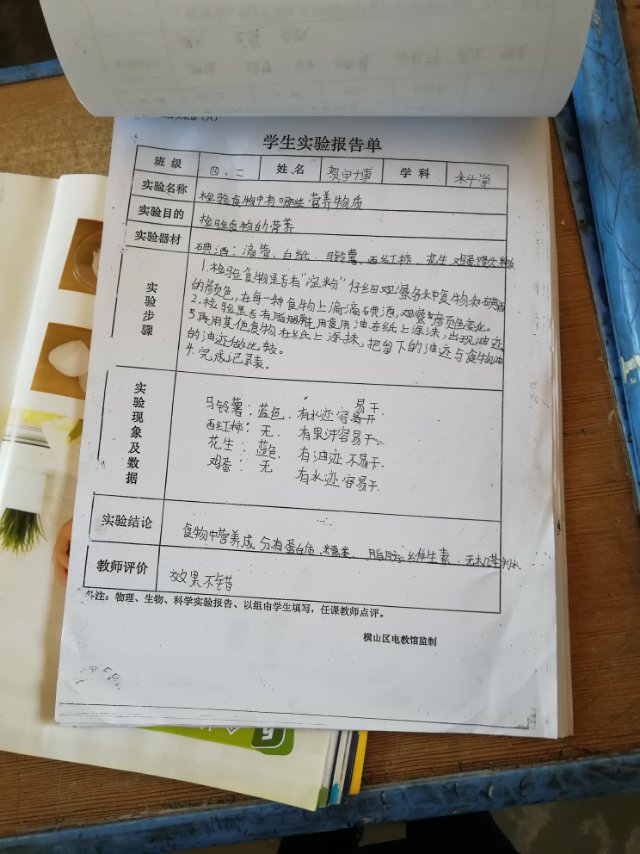 学生实验报告单
班级 四、二 姓名 学科 科学
实验名称 检验食物中有哪些营养物质
实验目的 检验食物的营养
实验器材 碘酒、滴管、白纸、马铃薯、西红柿、花生、鸡蛋
实验步骤
1.检验食物是否有“淀粉”仔细观察各种食物和碘酒
的颜色,在每一种食物上滴一滴碘酒,观察颜色变化。
2.检验是否有脂肪先用食用油在纸上涂抹,出现油迹
3.再用其他食物在纸上涂抹,把留下的油迹与食物油
的油迹做比较。
4.完成记录表.
实验现象及数据
马铃薯:蓝色,有水迹容易干
易干.
西红柿:无.有果汁容易干
花生:蓝色,有油迹不易干.
鸡蛋:无 有水迹容易干.
实验结论 食物中营养成分有蛋白质、糖类、脂肪、维生素、
教师评价 效果不错
备注:物理、生物、科学实验报告、以组由学生填写,任课教师点评。
横山区电教馆监制